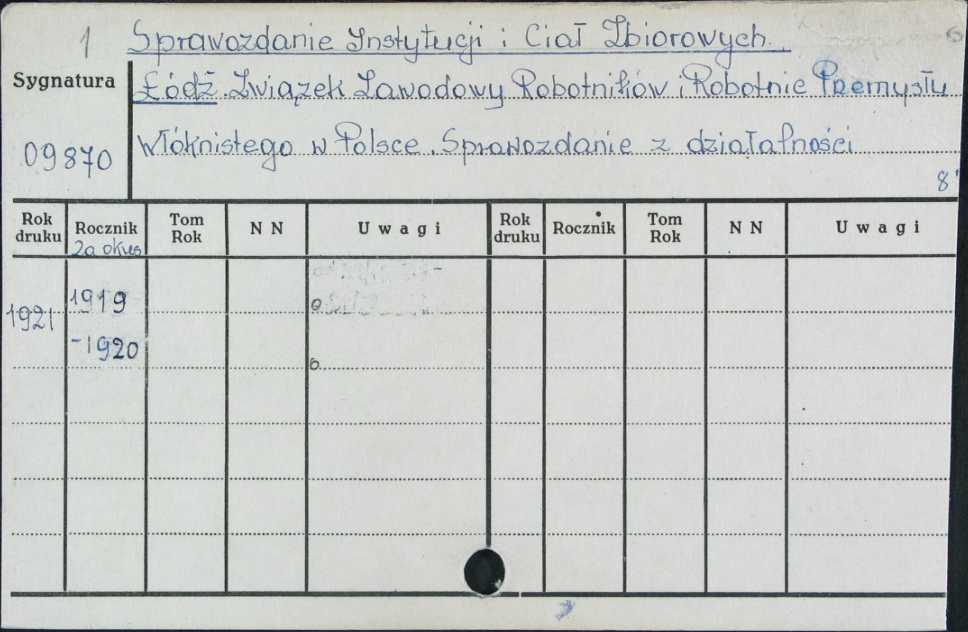 1 Sprawozdanie Instytucji i Ciał Zbiorowych.
Sygnatura
Łódź. Związek Zawodowy Robotników i Robotnic Przemysłu
09870
Włóknistego w Polsce. Sprawozdanie z działalności
8°
Rok druku Rocznik Tom Rok NN Uwagi Rok druku Rocznik Tom Rok NN Uwagi
za okres
1921 1919
-1920